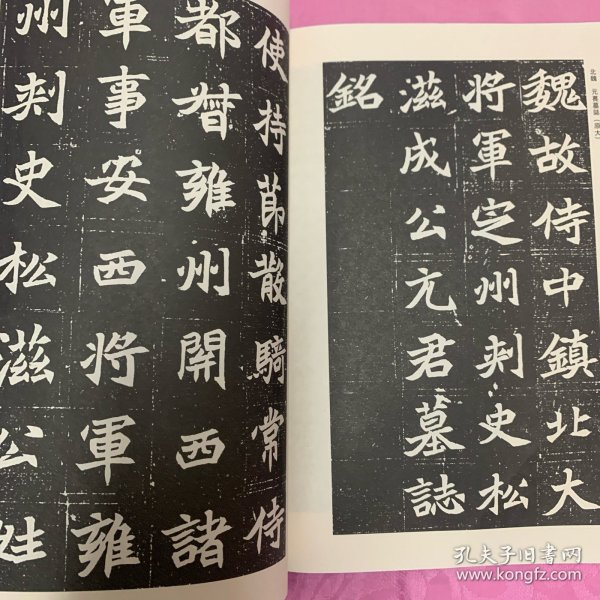 北魏 元萇墓誌（原大）
魏故侍中鎮北大
將軍定州刺史松
滋成公元君墓誌
銘
使持節散騎常侍
都督雍州關西諸
軍事安西將軍雍
州刺史松滋公姓
孔夫子旧书网
www.kongfz.com